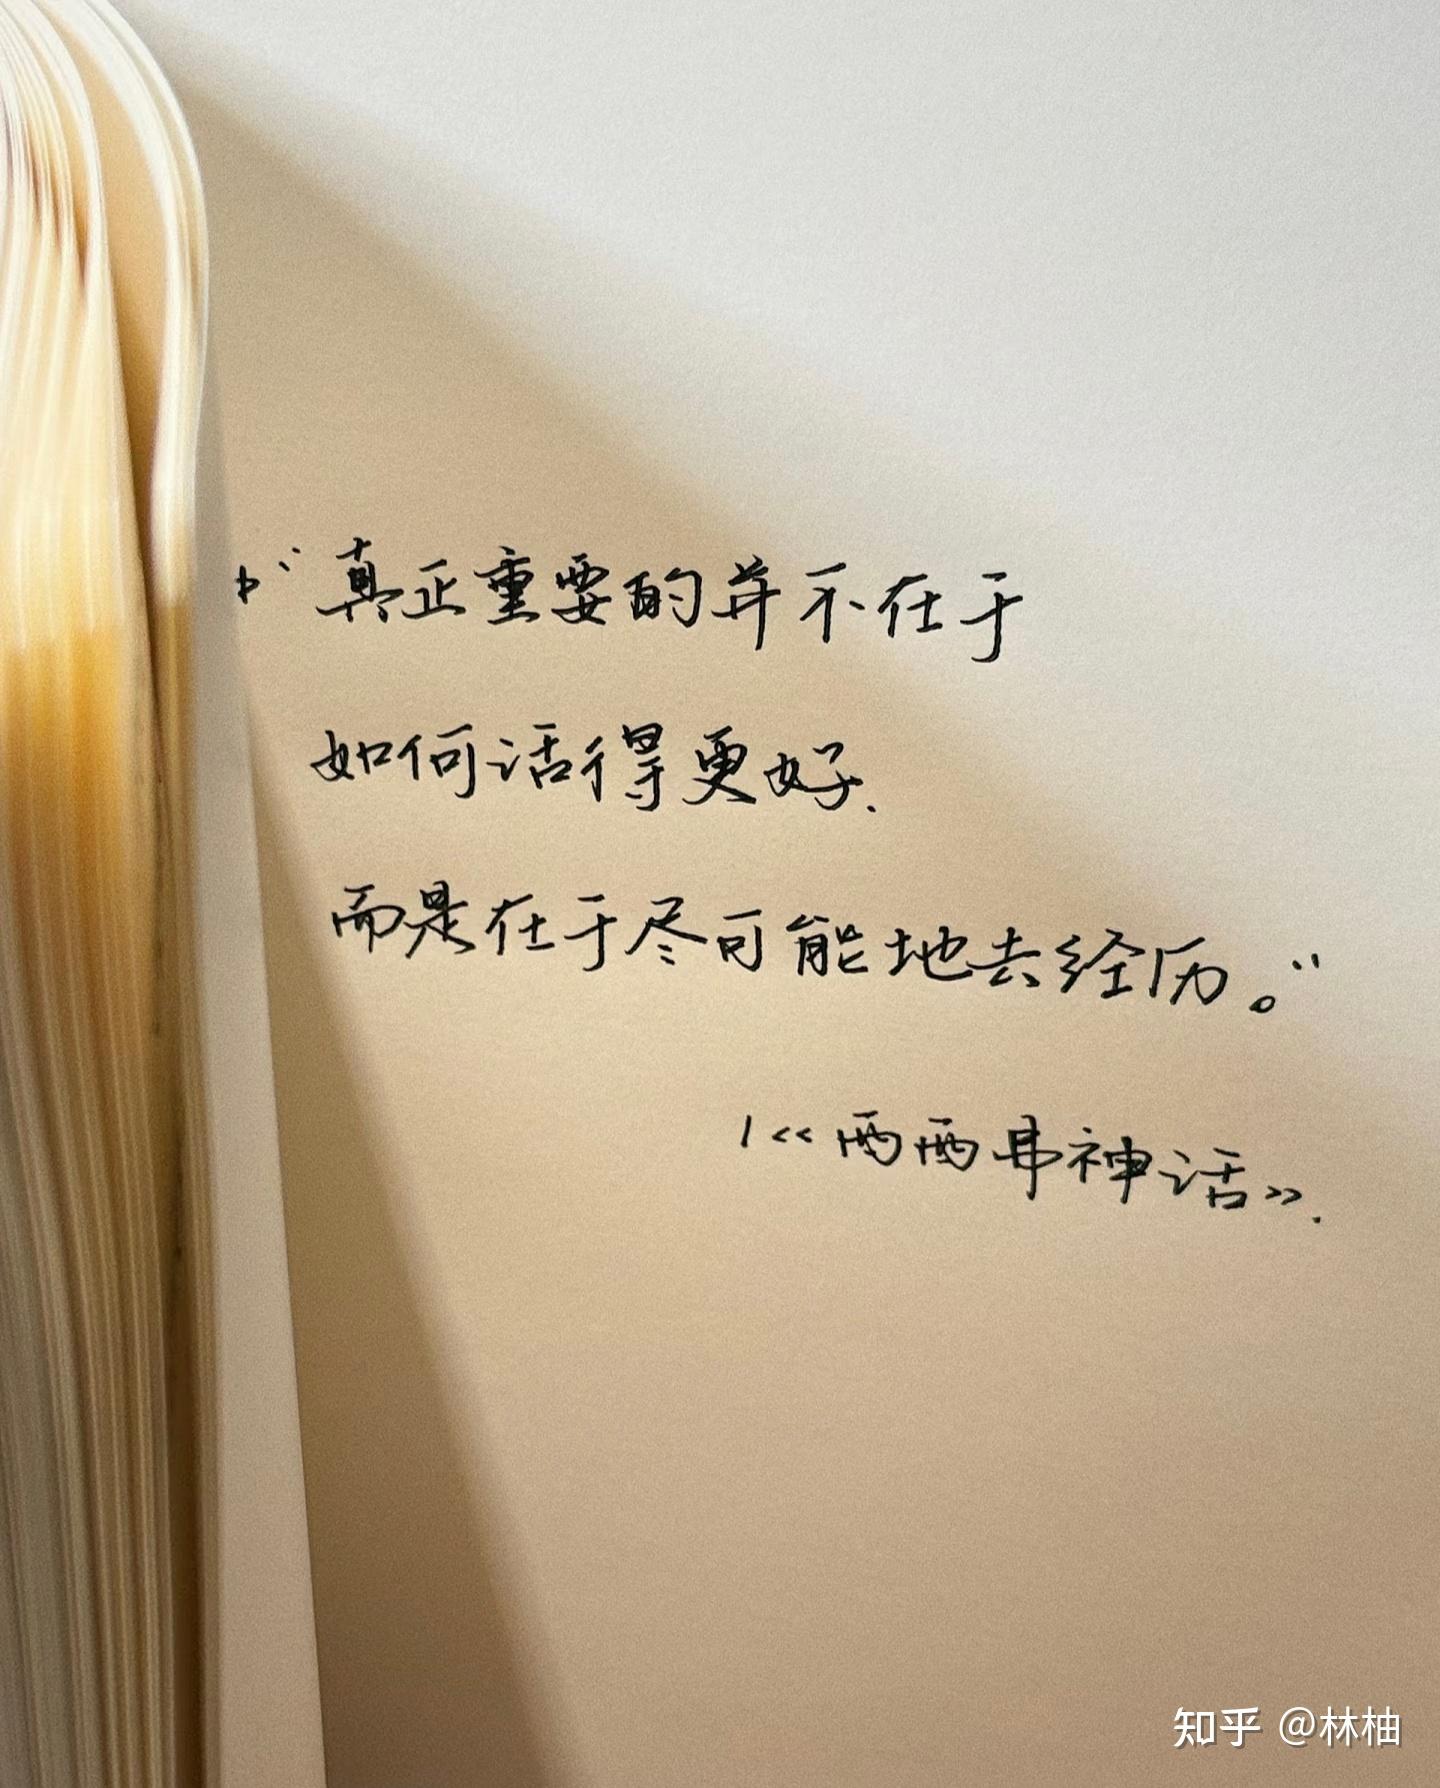 “真正重要的并不在于
如何活得更好.
而是在于尽可能地去经历。”
/《西西弗神话》.
知乎 @林柚